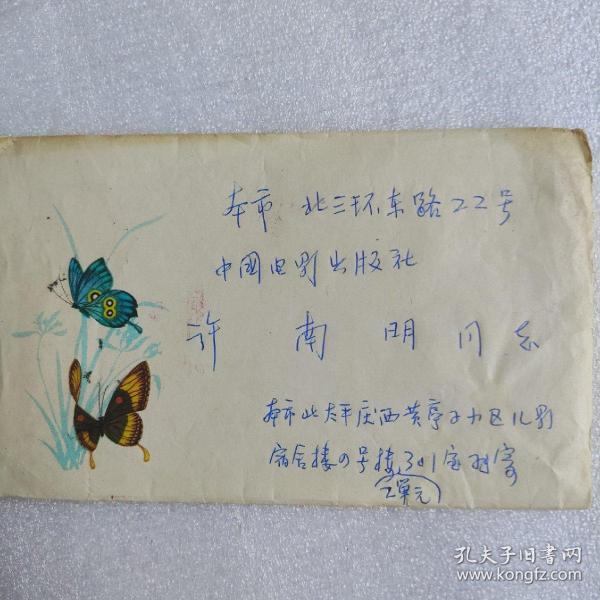 本市 北三环东路22号
中國电影出版社
许 南 明 同志
本市北太平庄西黄亭子小区儿影
宿舍楼4号楼301室 寄
2单元
孔夫子旧书网
www.kongfz.com